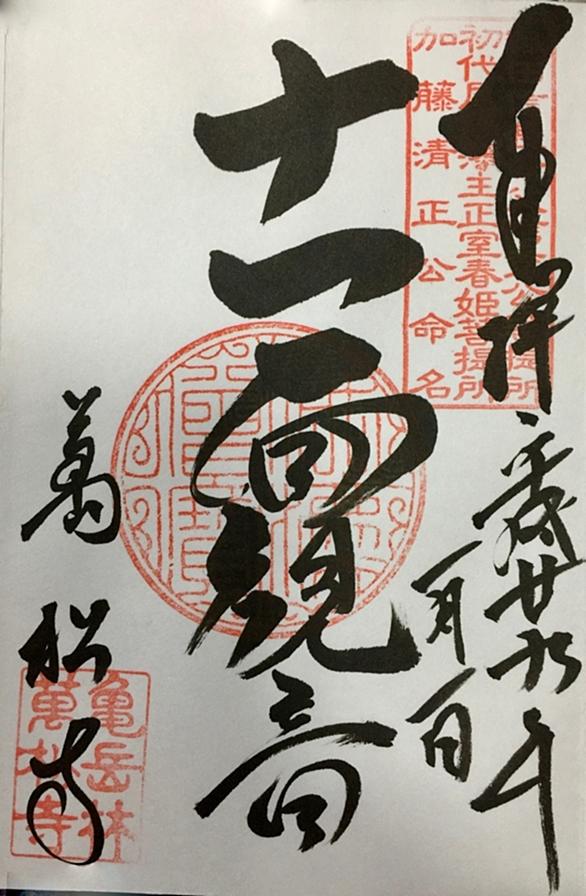 奉拝
平成廿九年
一月一日
十一面観音
萬松寺
初代尾張藩主正室春姫菩提所
加藤清正公命名
亀岳林
萬松寺